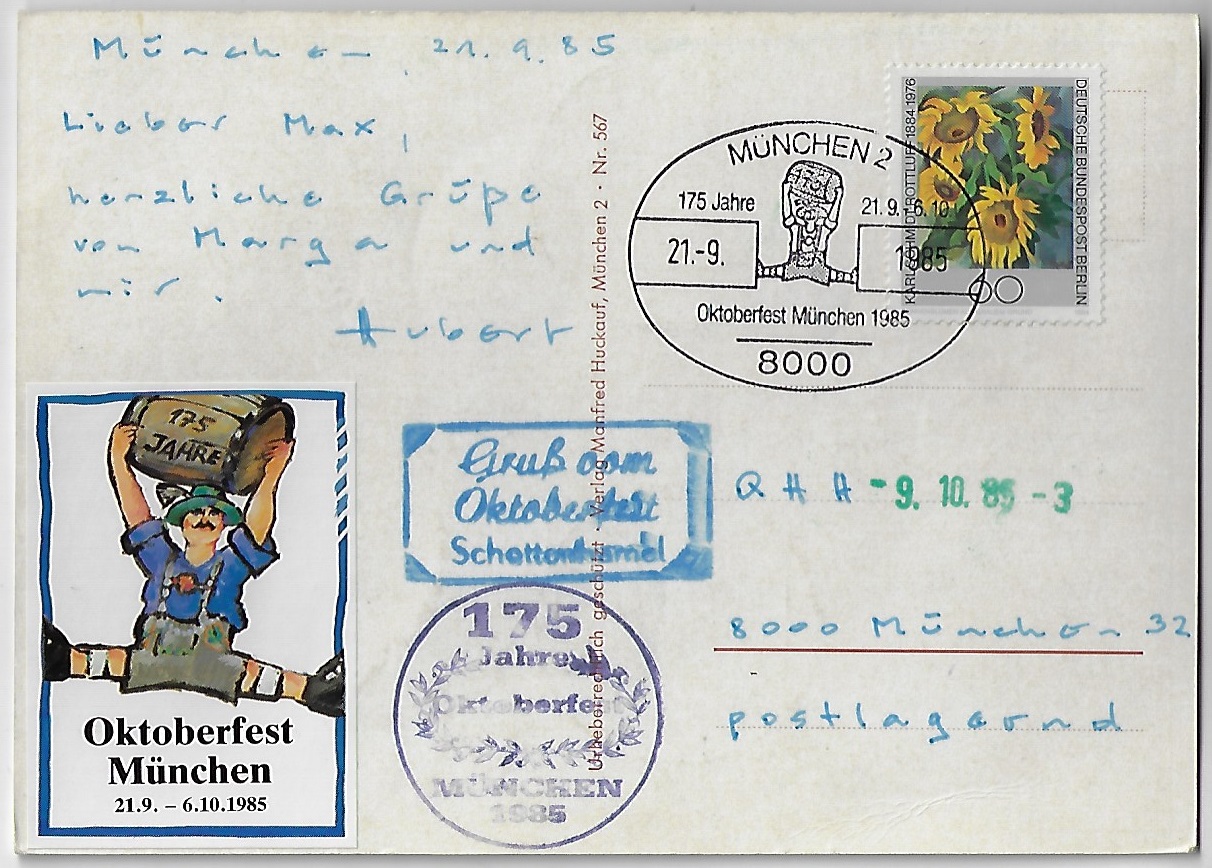 München, 21.9.85
Lieber Max,
herzliche Grüße
von Marga und
mir.
Hubert
175
JAHRE
Oktoberfest
München
21.9. – 6.10.1985
Gruß vom
Oktoberfest
Schottenhamel
175
Jahre
Oktoberfest
MÜNCHEN
1985
Urheberrechtlich geschützt · Verlag Manfred Huckauf, München 2 · Nr. 567
MÜNCHEN 2
175 Jahre
21.9.-6.10.
21.-9.
1985
Oktoberfest München 1985
8000
KARL SCHMIDT-ROTTLUFF 1884-1976
DEUTSCHE BUNDESPOST BERLIN
60
Q H H -9. 10. 85 -3
8000 München 32
postlagernd